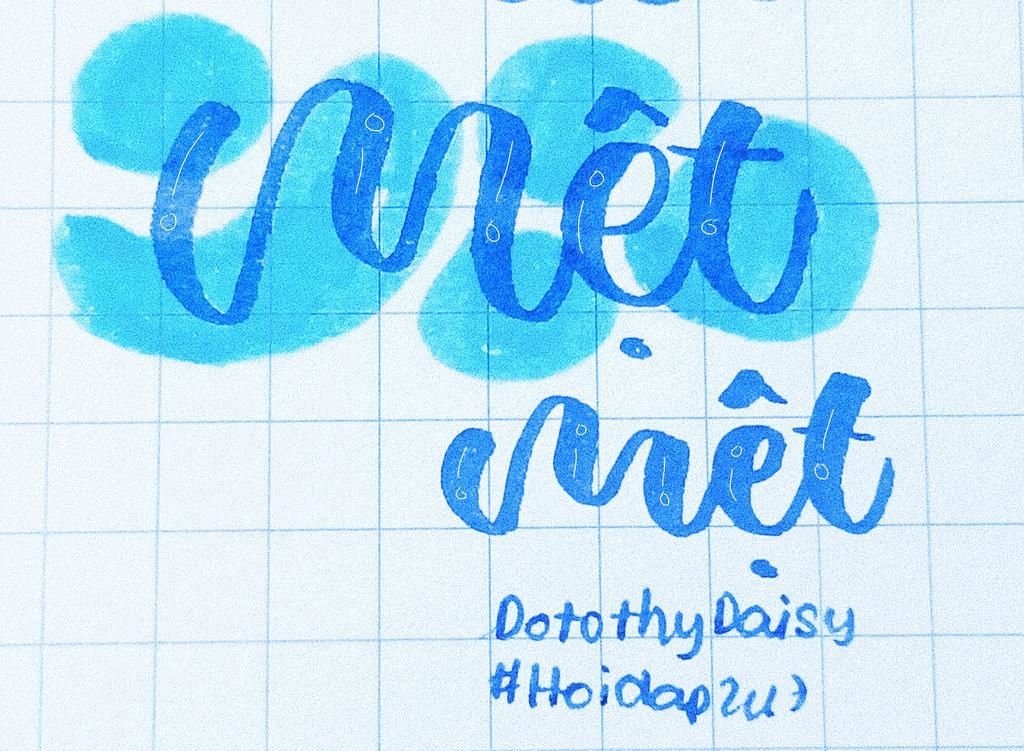 mệt
mệt
DotothyDaisy
#Hoidap247